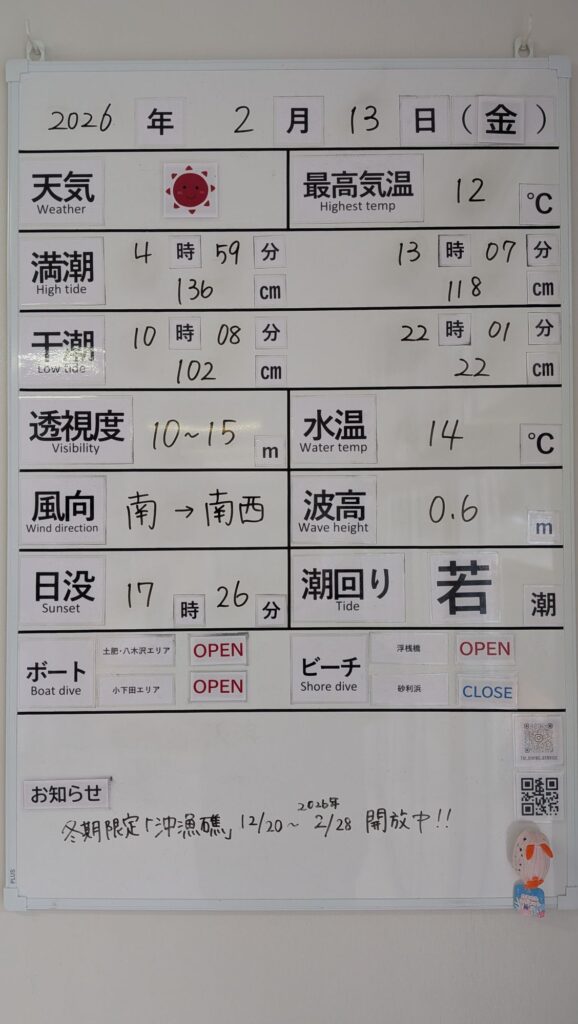 2026 年 2 月 13 日 (金)
天気 最高気温 12 ℃
Weather Highest temp
満潮 4 時 59 分 13 時 07 分
High tide 136 cm 118 cm
干潮 10 時 08 分 22 時 01 分
Low tide 102 cm 22 cm
透視度 10~15 m 水温 14 ℃
Visibility Water temp
風向 南→南西 波高 0.6 m
Wind direction Wave height
日没 17 時 26 分 潮回り 若 潮
Sunset Tide
ボート 土肥・八木沢エリア OPEN ビーチ 浮桟橋 OPEN
Boat dive 小下田エリア OPEN Shore dive 砂利浜 CLOSE
お知らせ
2026年
冬期限定「沖漁礁」12/20~2/28 開放中!!
PLUS